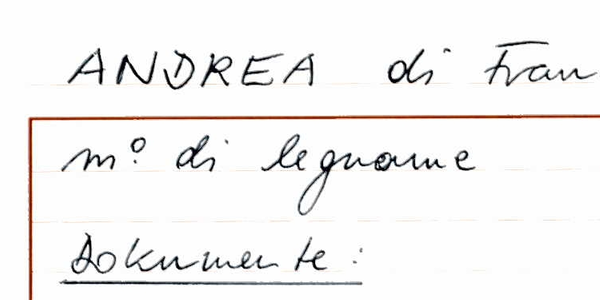 ANDREA di Fran
mº. di legname
Dokumente: